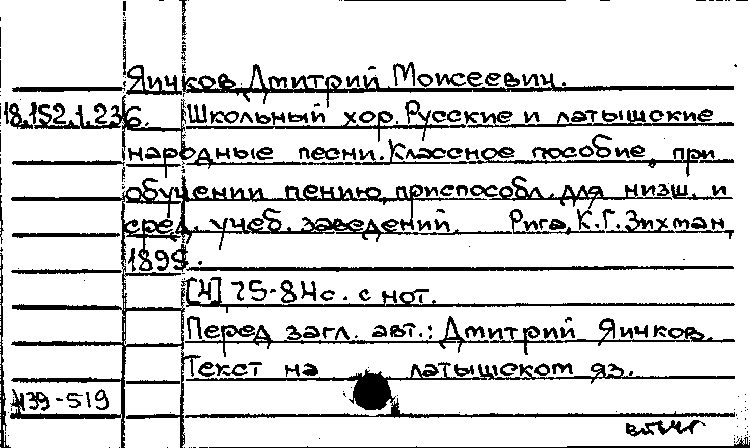 Яичков, Дмитрий Моисеевич.
18.152.1.236. Школьный хор. Русские и латышские
народные песни. Классное пособие при
обучении пению, приспособл. для низш. и
сред. учеб. заведений. Рига, К.Г. Зихман,
1899.
[4], 75-84 с. с нот.
Перед загл. авт.: Дмитрий Яичков.
Текст на латышском яз.
М39-519